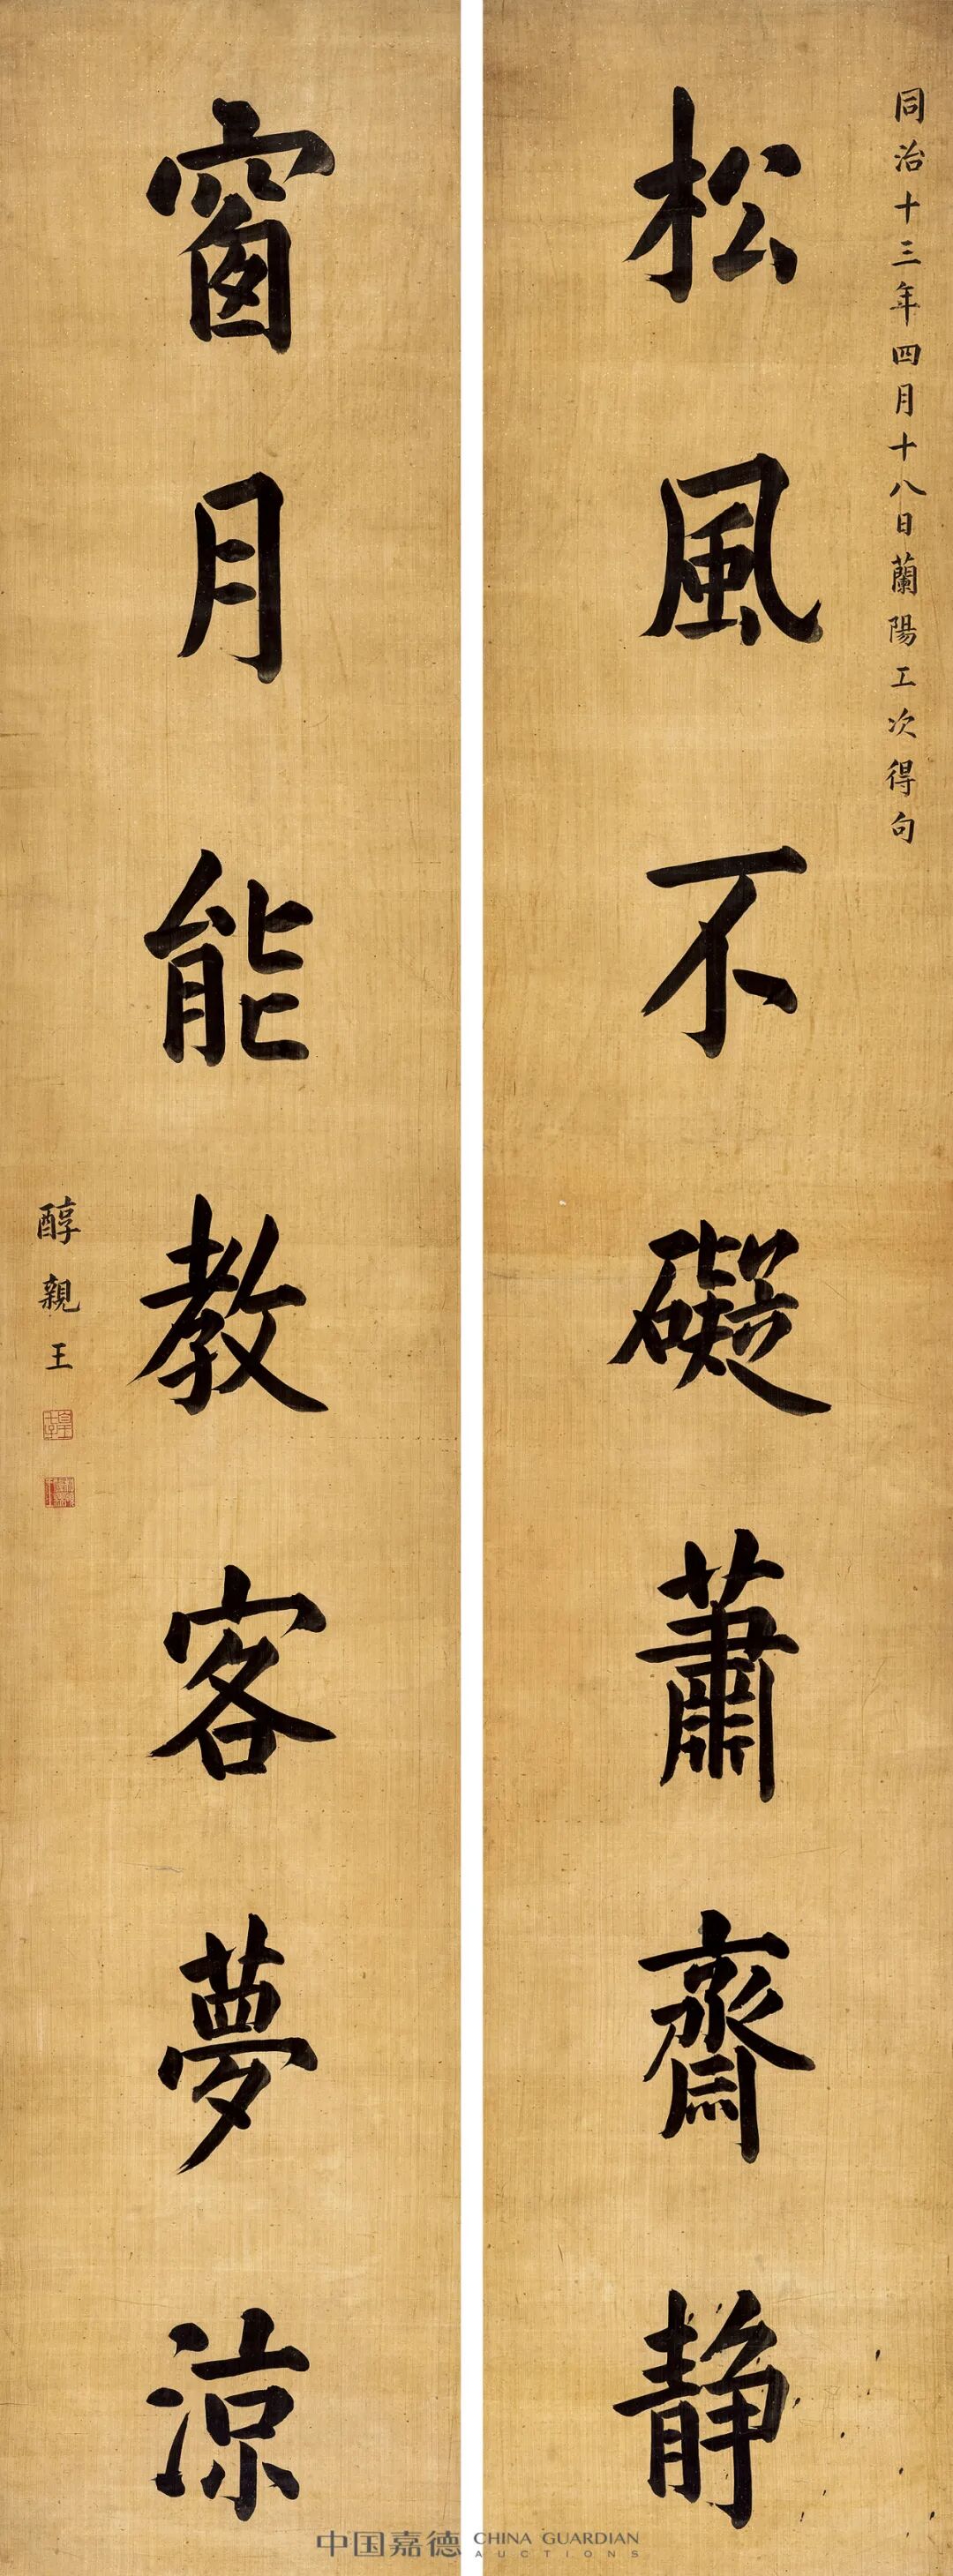 同治十三年四月十八日蘭陽工次得句
松風不礙蕭齋靜
窗月能教客夢涼
醇親王
中国嘉德 CHINA GUARDIAN
AUCTIONS